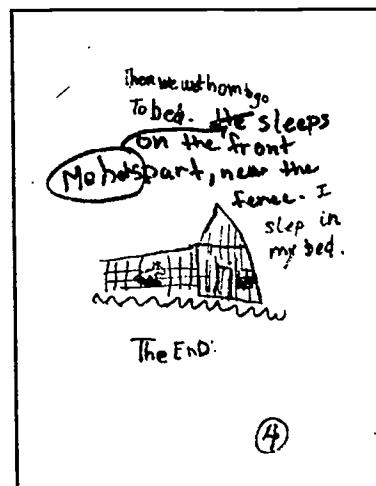 Then we wet hom to go
To bed. He sleeps
on the front
part, near the
fence. I
slep in
my bed.
The EnD.
4